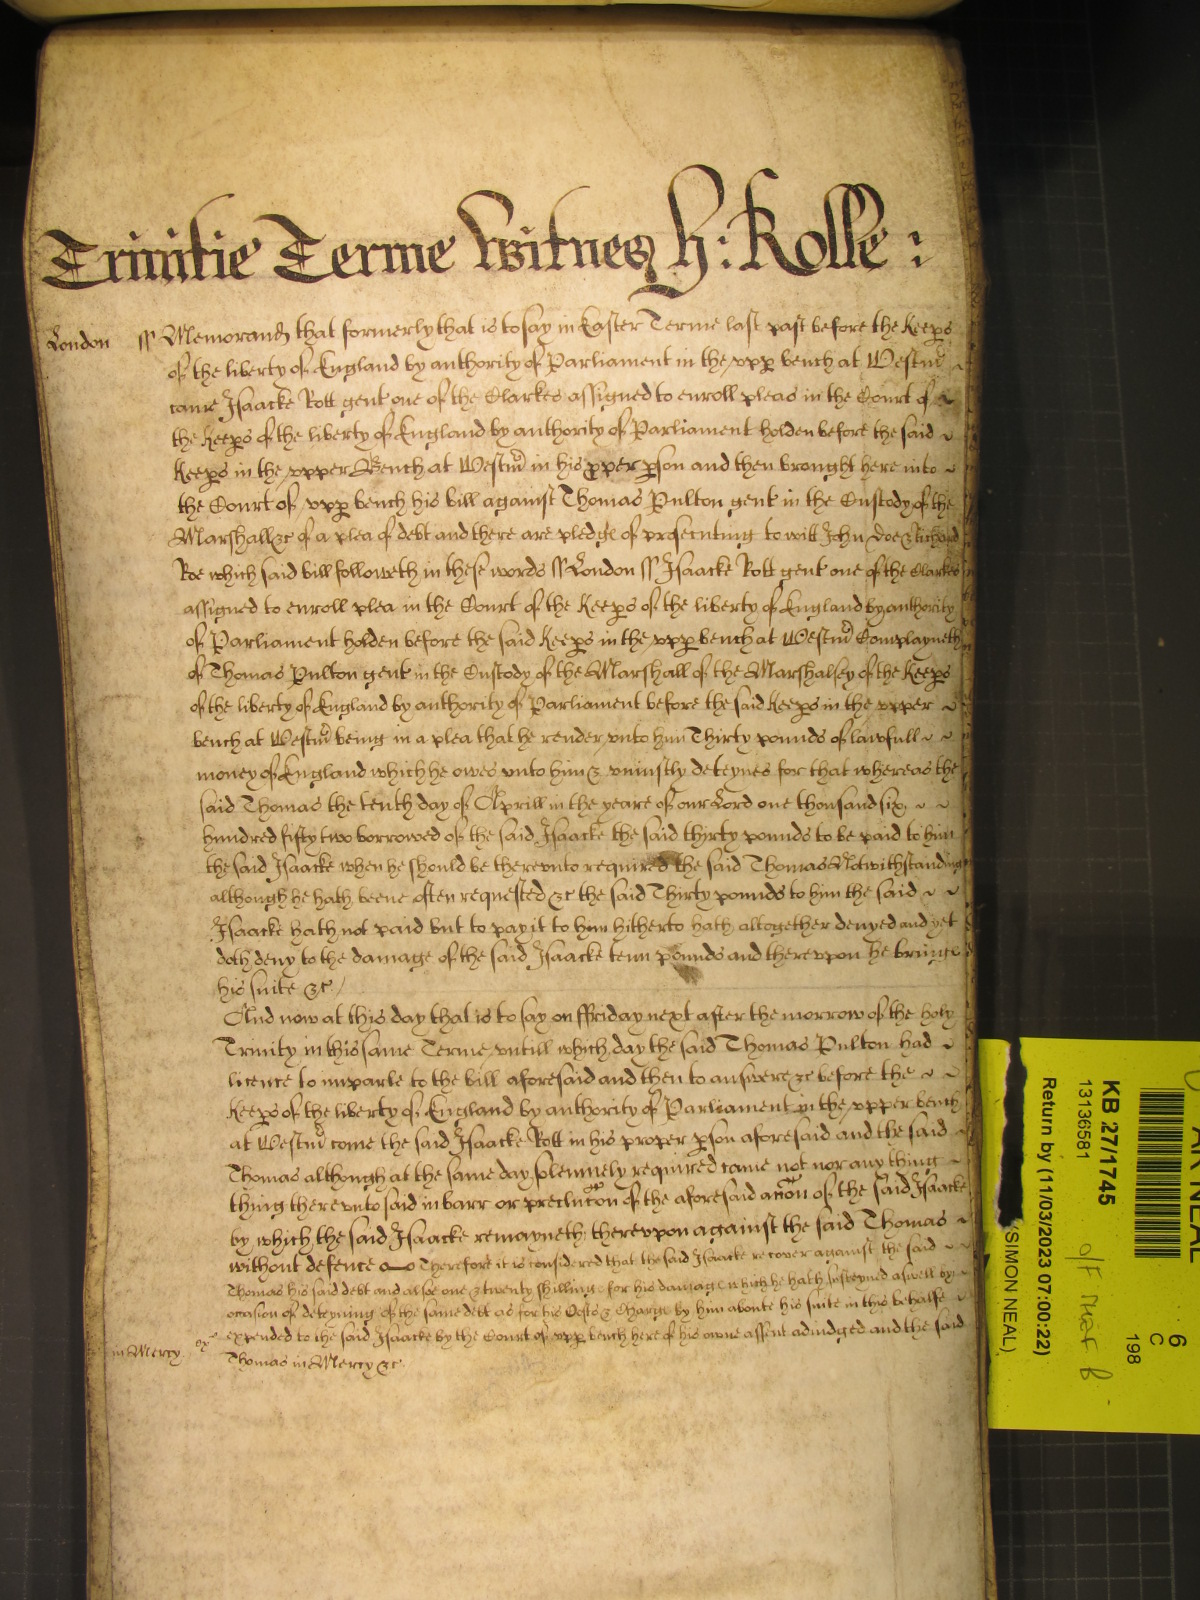 Trinitie Terme Witnes H: Rolle :
London ss Memorand that formerly that is to say in Easter Terme last past before the Keeps
of the liberty of England by authority of Parliament in the upp bench at Westm ~
came Isaacke Rott gent one of the Clarkes assigned to enroll pleas in the Court of ~
the Keeps of the liberty of England by authority of Parliament holden before the said ~
Keeps in the upper Bench at Westm in his pper pson and then brought here into ~
the Court of upp bench his bill against Thomas Pulton gent in the Custody of the
Marshall &c of a plea of debt and there are pledge of prosecuting to witt John Doe & Richard
Roe which said bill followeth in these words ss London ss Isaacke Rott gent one of the Clarkes
assigned to enroll plea in the Court of the Keeps of the liberty of England by authority
of Parliament holden before the said Keeps in the upp bench at Westm Complayneth
of Thomas Pulton gent in the Custody of the Marshall of the Marshalsey of the Keeps
of the liberty of England by authority of Parliament before the said Keeps in the upper ~
bench at Westm being in a plea that he render unto him Thirty pounds of lawfull ~ ~
money of England which he owes unto him & uniustly deteynes for that whereas the
said Thomas the tenth day of Aprill in the yeare of our Lord one thousand six ~ ~
hundred fifty two borrowed of the said Isaacke the said thirty pounds to be paid to him
the said Isaacke when he should be thereunto required the said Thomas Notwithstanding
although he hath beene often requested &c the said Thirty pounds to him the said ~ ~
Isaacke hath not paid but to pay it to him hitherto hath altogether denyed and yet
doth deny to the damage of the said Isaacke tenn pounds and thereupon he bringe
his suite &c /
And now at this day that is to say on ffriday next after the morrow of the holy
Trinity in this same Terme untill which day the said Thomas Pulton had ~
licence to imparle to the bill aforesaid and then to answere &c before the ~ ~
Keeps of the liberty of England by authority of Parliament in the upper bench
at Westm come the said Isaacke Rott in his proper pson aforesaid and the said ~
Thomas although at the same day solemnely required came not nor any thing ~
thing thereunto said in barr or preclucon of the aforesaid accon of the said Isaacke
by which the said Isaacke remayneth thereupon against the said Thomas ~
without defence Therefore it is considered that the said Isaacke recover against the said ~
Thomas his said debt and alsoe one & twenty shilling for his damage which he hath susteyned aswell by
occasion of deteyning of the same debt as for his Costs & Charge by him aboute his suite in this behalfe ~
expended to the said Isaacke by the Court of upp bench here of his owne assent adiudged and the said
in Mercy Thomas in Mercy &c.
KB 27/1745
13136581
Return by (11/03/2023 07:00:22)
(SIMON NEAL)
6
C
198